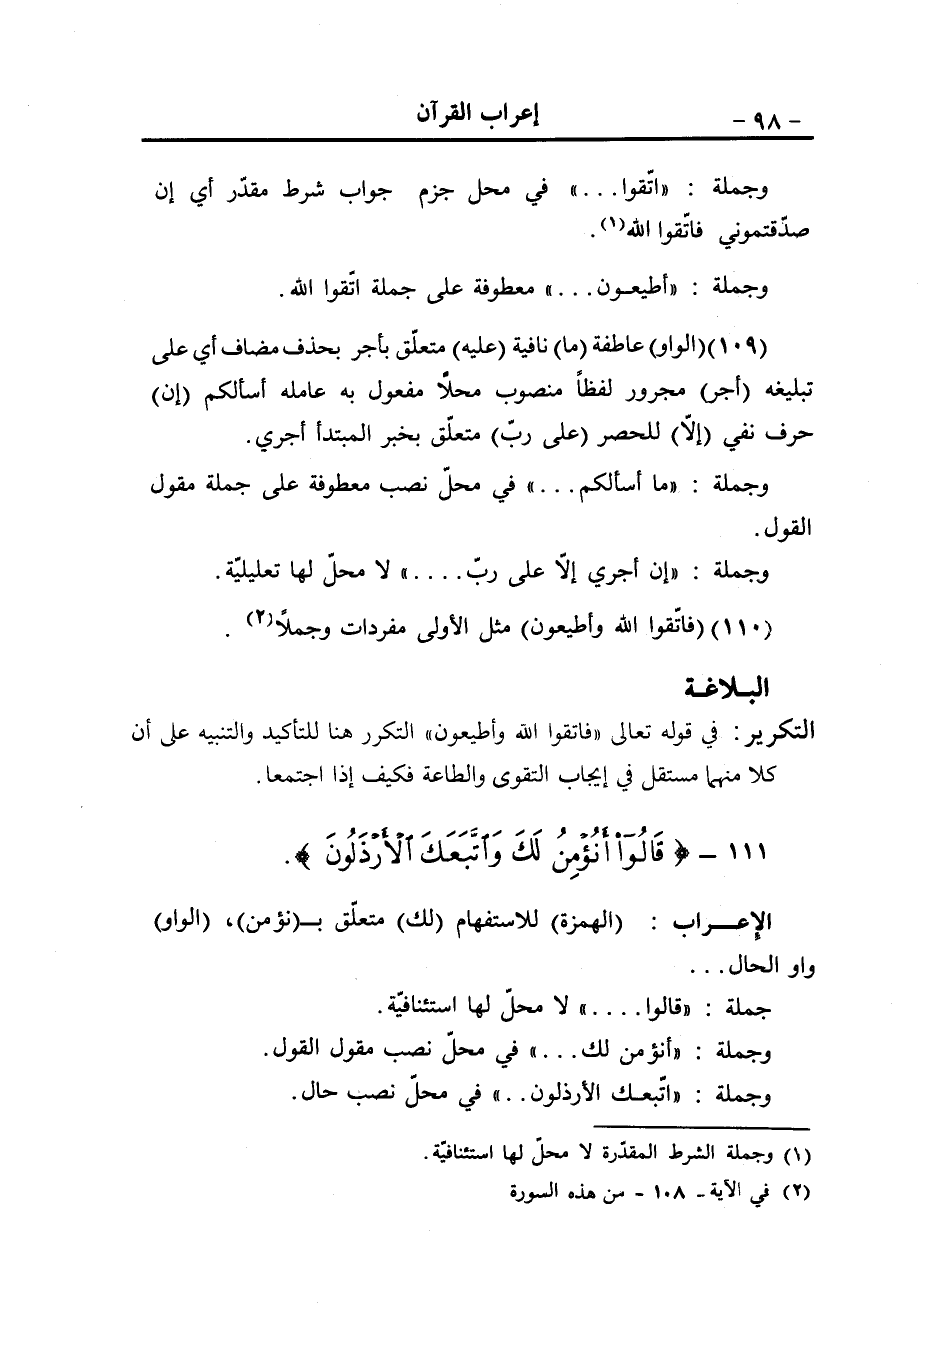 - ٩٨ - إعراب القرآن
وجملة : «اتّقوا...» في محل جزم جواب شرط مقدّر أي إن
صدّقتموني فاتّقوا الله(١).
وجملة : «أطيعـون...» معطوفة على جملة اتّقوا الله.
(١٠٩)(الواو) عاطفة (ما) نافية (عليه) متعلّق بأجر بحذف مضاف أي على
تبليغه (أجر) مجرور لفظاً منصوب محلاً مفعول به عامله أسألكم (إن)
حرف نفي (إلّا) للحصر (على ربّ) متعلّق بخبر المبتدأ أجري.
وجملة : «ما أسألكم...» في محلّ نصب معطوفة على جملة مقول
القول.
وجملة : «إن أجري إلّا على ربّ....» لا محلّ لها تعليليّة.
(١١٠) (فاتّقوا الله وأطيعون) مثل الأولى مفردات وجملاً(٢) .
البـلاغـة
التكرير: في قوله تعالى «فاتقوا الله وأطيعون» التكرر هنا للتأكيد والتنبيه على أن
كلا منهما مستقل في إيجاب التقوى والطاعة فكيف إذا اجتمعا.
١١١ - ﴿ قَالُوٓا۟ أَنُؤْمِنُ لَكَ وَٱتَّبَعَكَ ٱلْأَرْذَلُونَ ﴾.
الإعـــراب : (الهمزة) للاستفهام (لك) متعلّق بـ(نؤمن)، (الواو)
واو الحال...
جملة : «قالوا....» لا محلّ لها استئنافيّة.
وجملة : «أنؤمن لك...» في محلّ نصب مقول القول.
وجملة : «اتّبعـك الأرذلون..» في محلّ نصب حال.
(١) وجملة الشرط المقدّرة لا محلّ لها استئنافيّة.
(٢) في الآية - ١٠٨ - من هذه السورة